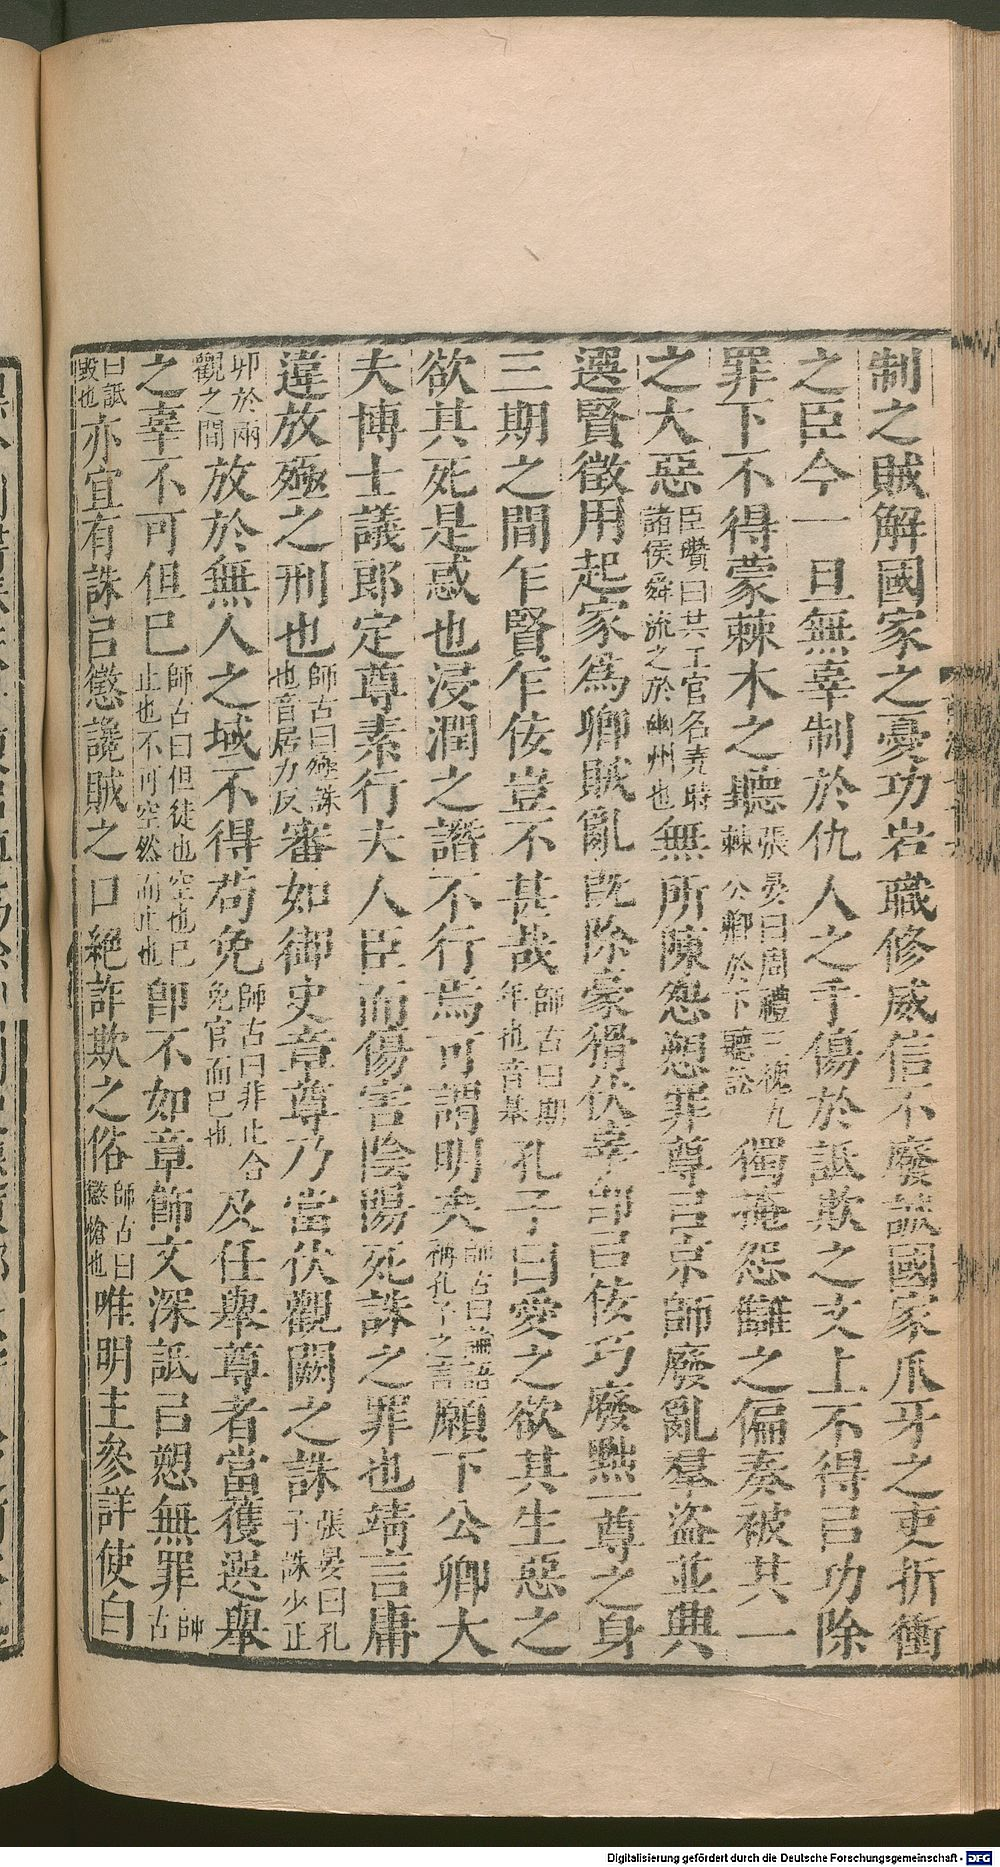 制之賊解國家之憂功著職修威信不廢誠國家爪牙之吏折衝
之臣今一旦無辜制於仇人之手傷於詆欺之文上不得㠯功除
罪下不得蒙棘木之聽張晏曰周禮三槐九棘公卿於下聽訟獨掩怨讎之偏奏被共工
之大惡臣瓚曰共工官名堯時諸侯舜流之於幽州也無所陳怨愬罪尊㠯京師廢亂羣盜並興
選賢徵用起家爲卿賊亂既除豪猾伏辜即㠯佞巧廢黜一尊之身
三期之間乍賢乍佞豈不甚哉師古曰期年也音基孔子曰愛之欲其生惡之
欲其死是惑也浸潤之譖不行焉可謂明矣師古曰論語稱孔子之言願下公卿大
夫博士議郎定尊素行夫人臣而傷害陰陽死誅之罪也靖言庸
違放殛之刑也師古曰殛誅也音居力反審如御史章尊乃當伏觀闕之誅張晏曰孔子誅少正
卯於兩觀之間放於無人之域不得苟免師古曰非止合免官而已也及任舉尊者當獲選舉
之辜不可但巳師古曰但徒也空也巳止也不可空然而止也卽不如章飾文深詆㠯愬無罪師古
曰詆毀也亦宜有誅㠯懲讒賊之口絕詐欺之俗師古曰懲創也唯明主參詳使白
Digitalisierung gefördert durch die Deutsche Forschungsgemeinschaft - DFG